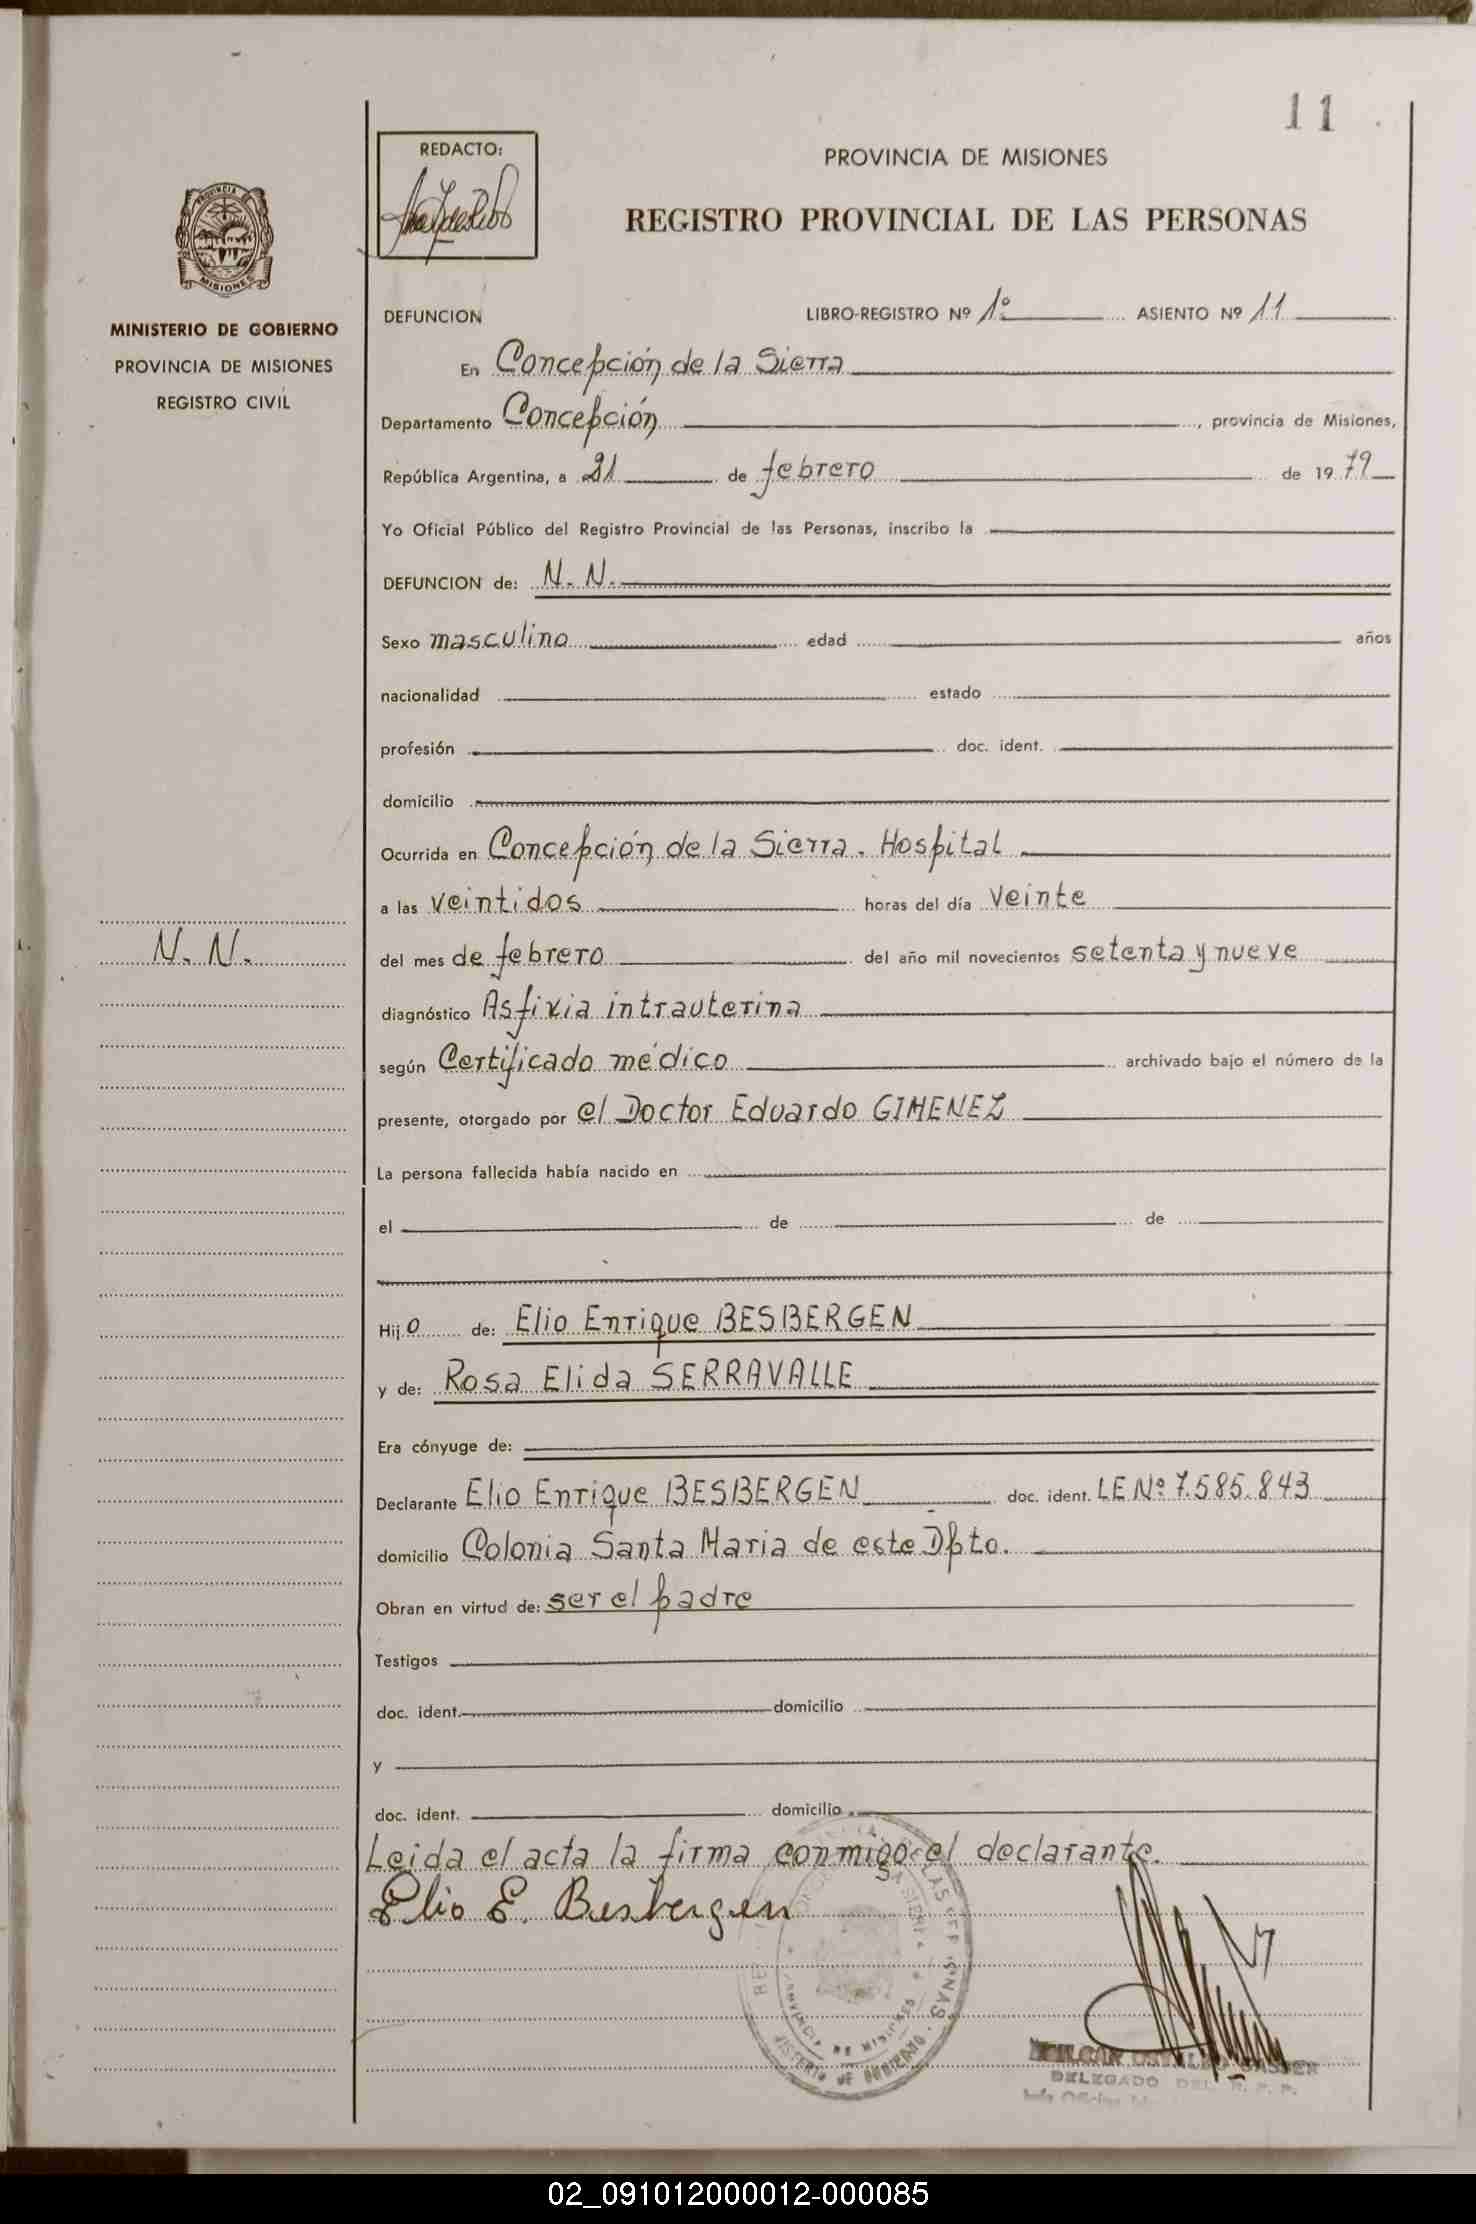 11
REDACTO:
PROVINCIA DE MISIONES
REGISTRO PROVINCIAL DE LAS PERSONAS
PROVINCIA DE
MISIONES
MINISTERIO DE GOBIERNO
PROVINCIA DE MISIONES
REGISTRO CIVIL
DEFUNCION LIBRO-REGISTRO Nº 1º ASIENTO Nº 11
En Concepción de la Sierra
Departamento Concepción, provincia de Misiones,
República Argentina, a 21 de febrero de 1979
Yo Oficial Público del Registro Provincial de las Personas, inscribo la
DEFUNCION de: N. N.
Sexo masculino edad años
nacionalidad estado
profesión doc. ident.
domicilio
Ocurrida en Concepción de la Sierra. Hospital
a las veintidos horas del día veinte
N. N.
del mes de febrero del año mil novecientos setenta y nueve
diagnóstico Asfixia intrauterina
según Certificado médico archivado bajo el número de la
presente, otorgado por el Doctor Eduardo GIMENEZ
La persona fallecida había nacido en
el de de
Hijo de: Elio Enrique BESBERGEN
y de: Rosa Elida SERRAVALLE
Era cónyuge de:
Declarante Elio Enrique BESBERGEN doc. ident. LE Nº 7.585.843
domicilio Colonia Santa Maria de este Dpto.
Obran en virtud de: ser el padre
Testigos
doc. ident. domicilio
y
doc. ident. domicilio
Leida el acta la firma conmigo el declarante.
Elio E. Besbergen
PROVINCIA DE MISIONES
MINISTERIO DE GOBIERNO
DELEGADO DEL R. P. P.
02_091012000012-000085